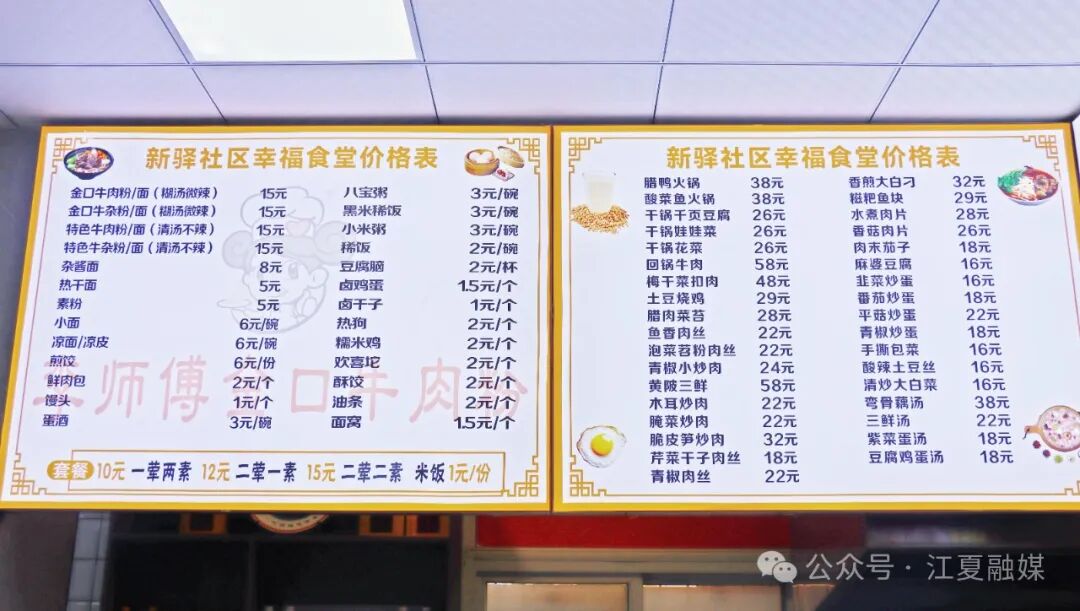 新驿社区幸福食堂价格表
金口牛肉粉/面（糊汤微辣） 15元
金口牛杂粉/面（糊汤微辣） 15元
特色牛肉粉/面（清汤不辣） 15元
特色牛杂粉/面（清汤不辣） 15元
杂酱面 8元
热干面 5元
素粉 5元
小面 6元/碗
凉面/凉皮 6元/碗
煎饺 6元/份
鲜肉包 2元/个
馒头 1元/个
蛋酒 3元/碗
八宝粥 3元/碗
黑米稀饭 3元/碗
小米粥 3元/碗
稀饭 2元/碗
豆腐脑 2元/杯
卤鸡蛋 1.5元/个
卤干子 1元/个
热狗 2元/个
糯米鸡 2元/个
欢喜坨 2元/个
酥饺 2元/个
油条 2元/个
面窝 1.5元/个
师傅金口牛肉粉
套餐 10元 一荤两素 12元 二荤一素 15元 二荤二素 米饭1元/份
新驿社区幸福食堂价格表
腊鸭火锅 38元
酸菜鱼火锅 38元
干锅千页豆腐 26元
干锅娃娃菜 26元
干锅花菜 26元
回锅牛肉 58元
梅干菜扣肉 48元
土豆烧鸡 29元
腊肉菜苔 28元
鱼香肉丝 22元
泡菜苕粉肉丝 22元
青椒小炒肉 24元
黄陂三鲜 58元
木耳炒肉 22元
腌菜炒肉 22元
脆皮笋炒肉 32元
芹菜干子肉丝 18元
青椒肉丝 22元
香煎大白刁 32元
糍粑鱼块 29元
水煮肉片 28元
香菇肉片 26元
肉末茄子 18元
麻婆豆腐 16元
韭菜炒蛋 16元
番茄炒蛋 18元
平菇炒蛋 22元
青椒炒蛋 18元
手撕包菜 16元
酸辣土豆丝 16元
清炒大白菜 16元
弯骨藕汤 38元
三鲜汤 22元
紫菜蛋汤 18元
豆腐鸡蛋汤 18元
公众号·江夏融媒